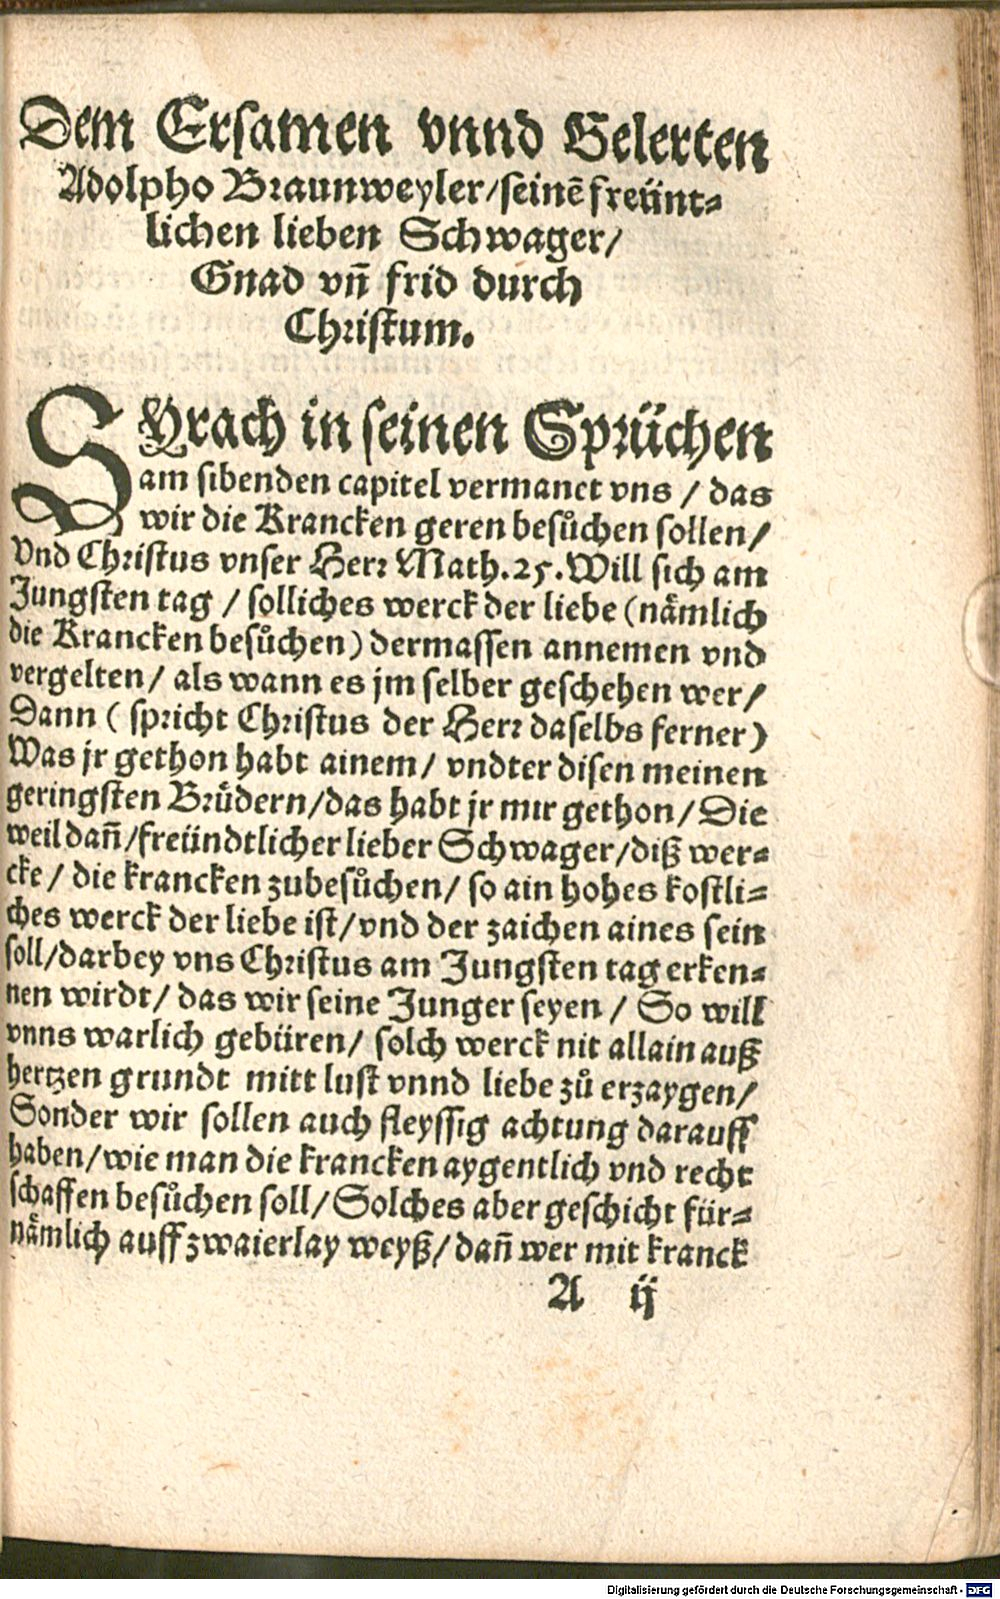 Dem Ersamen vnnd Gelerten
Adolpho Braunweyler/seinē freünt⸗
lichen lieben Schwager/
Gnad vn̄ frid durch
Christum.
SYrach in seinen Sprüchen
am sibenden capitel vermanet vns / das
wir die Krancken geren besůchen sollen/
Vnd Christus vnser Herr Math.25.Will sich am
Jungsten tag / solliches werck der liebe (nämlich
die Krancken besůchen) dermassen annemen vnd
vergelten/ als wann es jm selber geschehen wer/
Dann ( spricht Christus der Herr daselbs ferner)
Was jr gethon habt ainem/ vndter disen meinen
geringsten Brüdern/das habt jr mir gethon/ Die
weil dan̄/freündtlicher lieber Schwager/diß wer⸗
cke/ die krancken zubesůchen/ so ain hohes kostli⸗
ches werck der liebe ist/vnd der zaichen aines sein
soll/darbey vns Christus am Jungsten tag erken⸗
nen wirdt/ das wir seine Junger seyen/ So will
vnns warlich gebüren/ solch werck nit allain auß
hertzen grundt mitt lust vnnd liebe zů erzaygen/
Sonder wir sollen auch fleyssig achtung darauff
haben/wie man die krancken aygentlich vnd recht
schaffen besůchen soll/Solches aber geschicht für⸗
nämlich auff zwaierlay weyß/dan̄ wer mit kranck
A ij
Digitalisierung gefördert durch die Deutsche Forschungsgemeinschaft - DFG